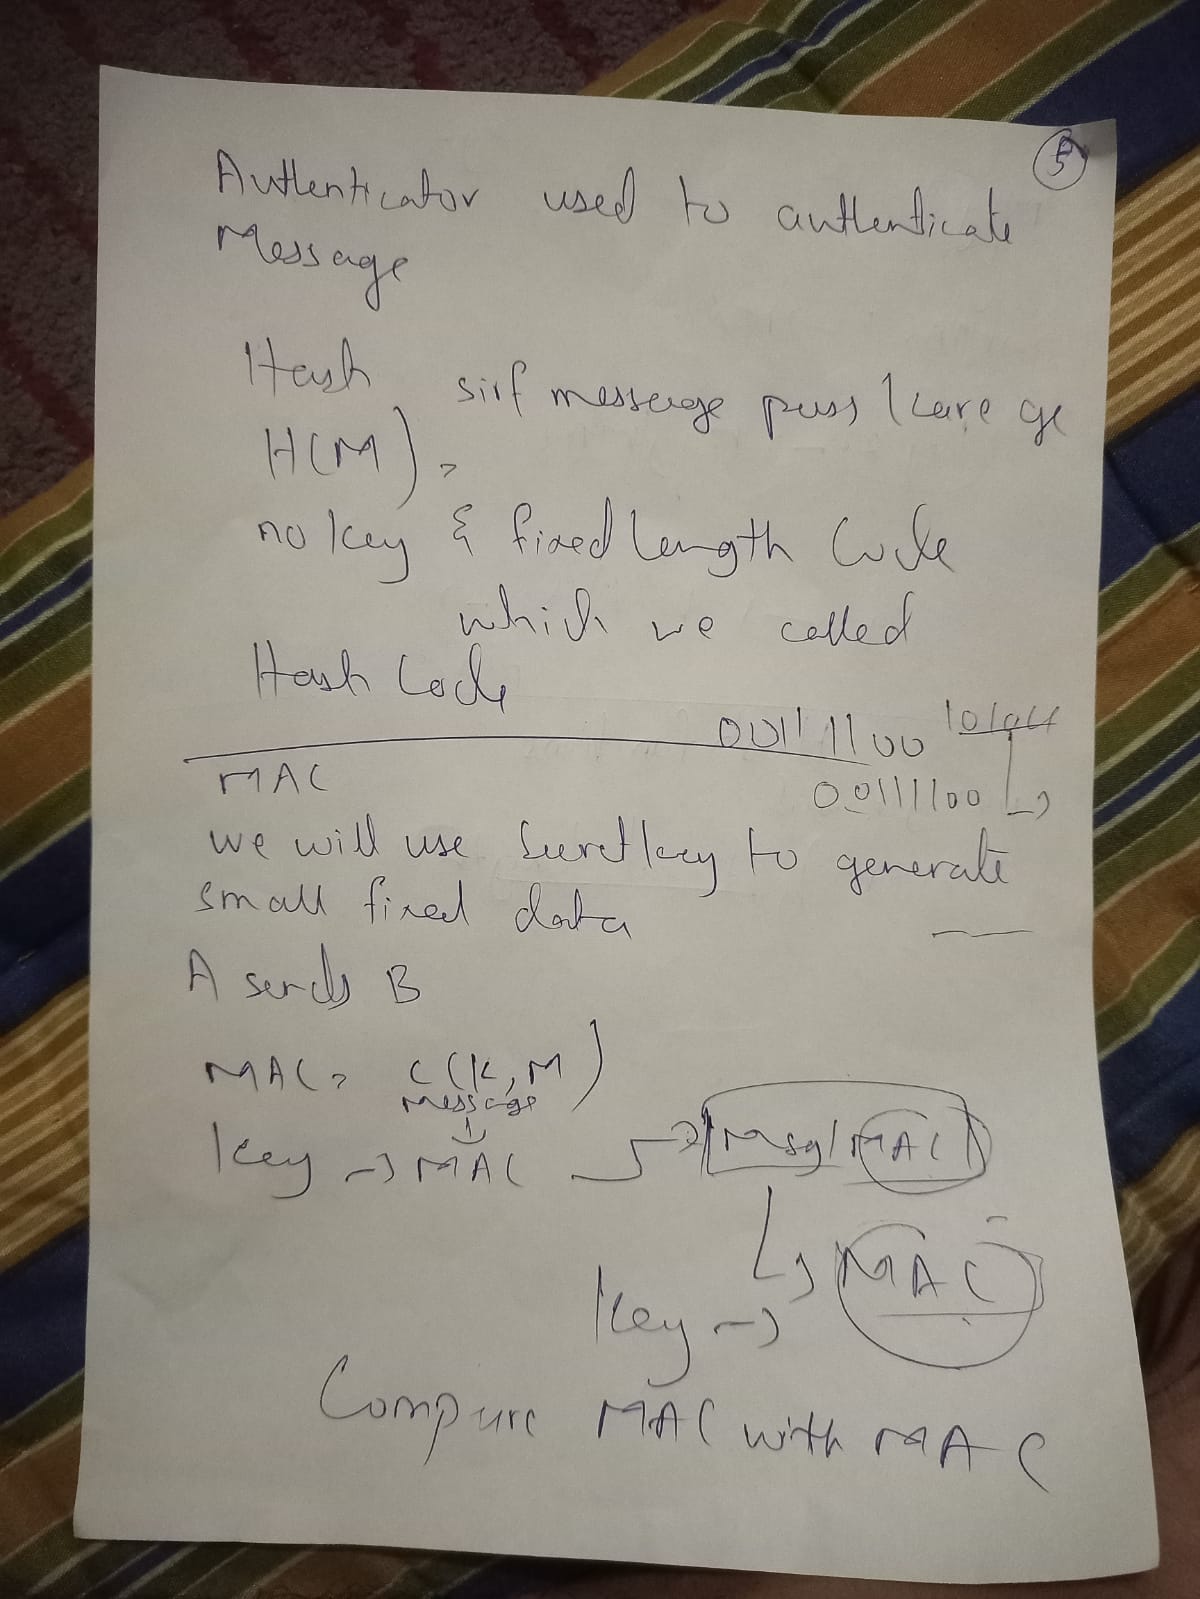 5
Authenticator used to authenticate
Message
Hash sirf message pass kare ge
H(M),
no key & fixed length Code
which we called
Hash Code
00111100
MAC
00111100
we will use Secret key to generate
small fixed data
A sends B
MAC = C(K, M)
Message
key → MAC → Msg/MAC
MAC
key →
Compare MAC with MAC